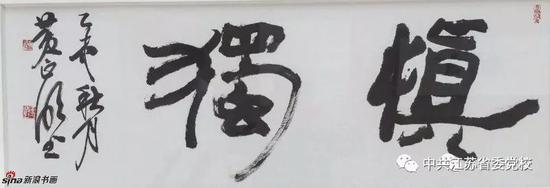 慎獨
乙未秋月
中共江苏省委党校
sina新浪书画